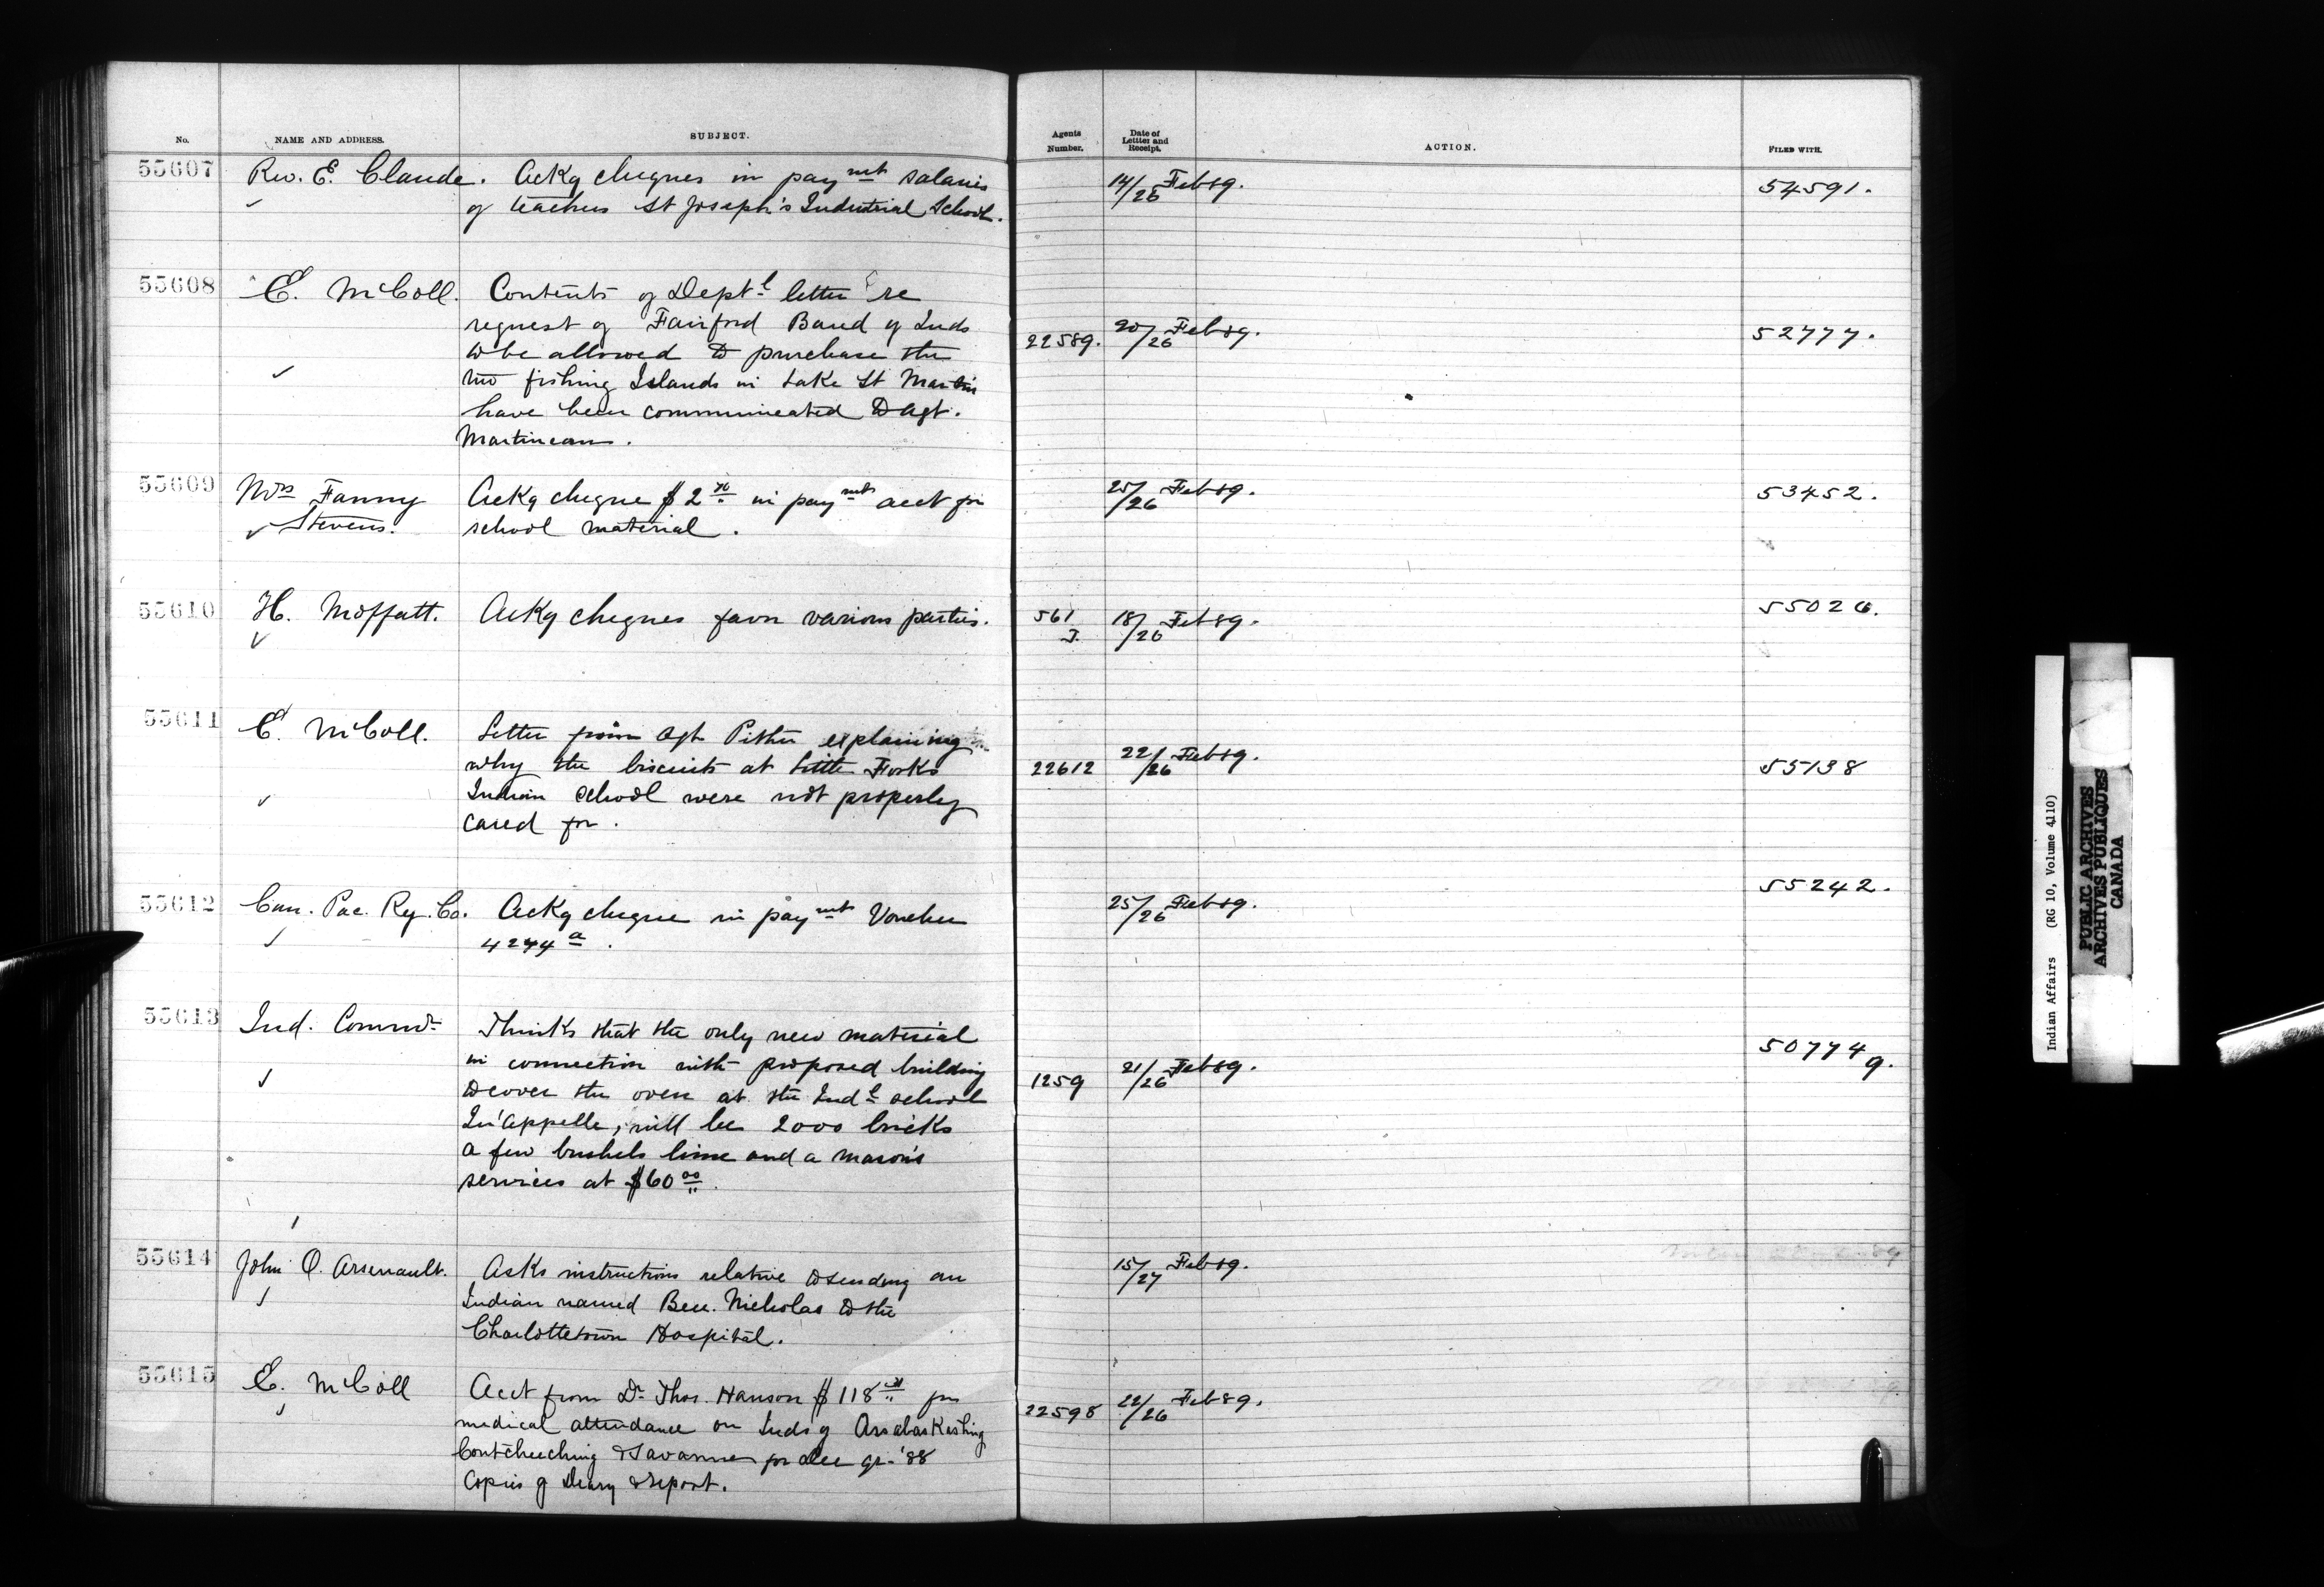 No. NAME AND ADDRESS. SUBJECT. Agents Number. Date of Lettter and Receipt. ACTION. FILED WITH.
55607 Rev. E. Claude. Ackg cheques in paymt salaries 14/26 Feb 89. 54591.
of teachers St Joseph's Industrial School.
55608 E. McColl. Contents of Deptl letter re
request of Fairford Band of Inds 22589. 20/26 Feb 89. 52777.
to be allowed to purchase the
two fishing Islands in Lake St Martin
have been communicated to Agt.
Martineau.
55609 Mrs Fanny Ackg cheque $2 in paymt acct for 25/26 Feb 89. 53452.
Stevens. school material.
55610 H. Moffatt. Ackg cheques favor various parties. 561 18/26 Feb 89. 55026.
J.
55611 E. McColl. Letter from Agt Pither explaining
why the biscuits at Little Forks 22612 22/26 Feb 89. 55138
Indian School were not properly
cared for.
55612 Can. Pac. Ry. Co. Ackg cheque in paymt Voucher 25/26 Feb 89. 55242.
4274 a.
55613 Ind. Commr Thinks that the only new material
in connection with proposed building 1259 21/26 Feb 89. 50774 9.
to cover the oven at the Indl school
Qu'Appelle, will be 2000 bricks
a few bushels lime and a mason's
services at $60 00.
55614 John O. Arsenault. Asks instructions relative to sending an 15/27 Feb 89.
Indian named Ben. Nicholas to the
Charlottetown Hospital.
55615 E. McColl Acct from Dr Thos. Hanson $118 for
medical attendance on Inds of Assabaskashing 22598 22/26 Feb 89.
Coutcheeching & Savanne for Dec qr. '88
Copies of Diary & report.
Indian Affairs (RG 10, Volume 4110)
PUBLIC ARCHIVES
ARCHIVES PUBLIQUES
CANADA